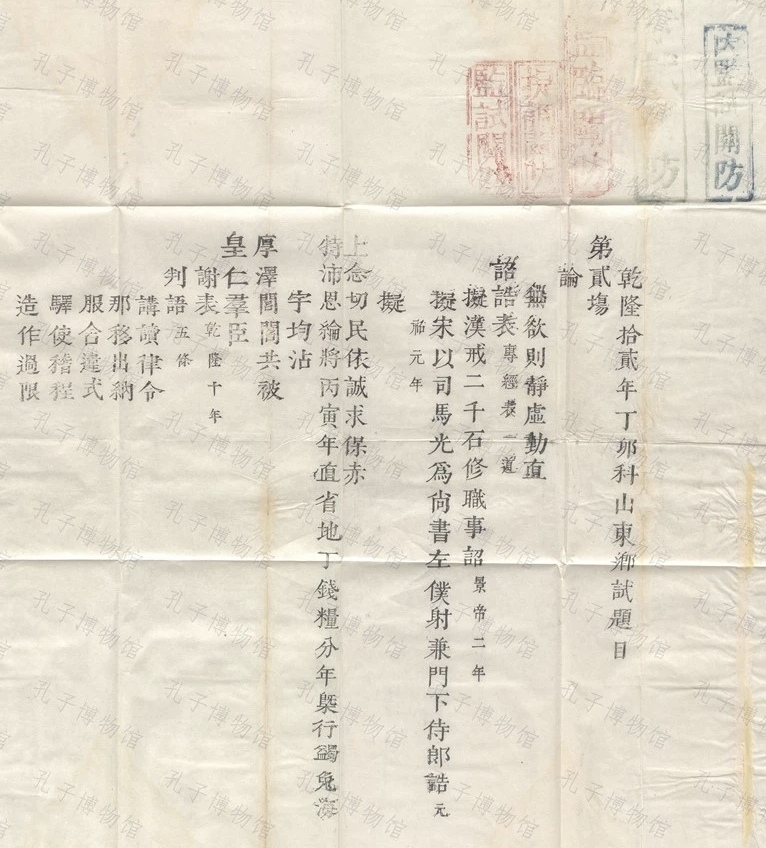 乾隆拾貳年丁卯科山東鄉試題目
第貳場
論
無欲則靜虛動直
詔誥表專經表一道
擬漢戒二千石修職事詔景帝二年
擬宋以司馬光爲尙書左僕射兼門下侍郎誥元
祐元年
擬
上念切民依誠求保赤
特沛恩綸將丙寅年直省地丁錢糧分年槩行蠲免海
宇均沾
厚澤閭閻共被
皇仁羣臣
謝表乾隆十年
判語五條
講讀律令
那移出納
服舍違式
驛使稽程
造作過限
內監試關防
監試關
监臨關防
孔子博物馆